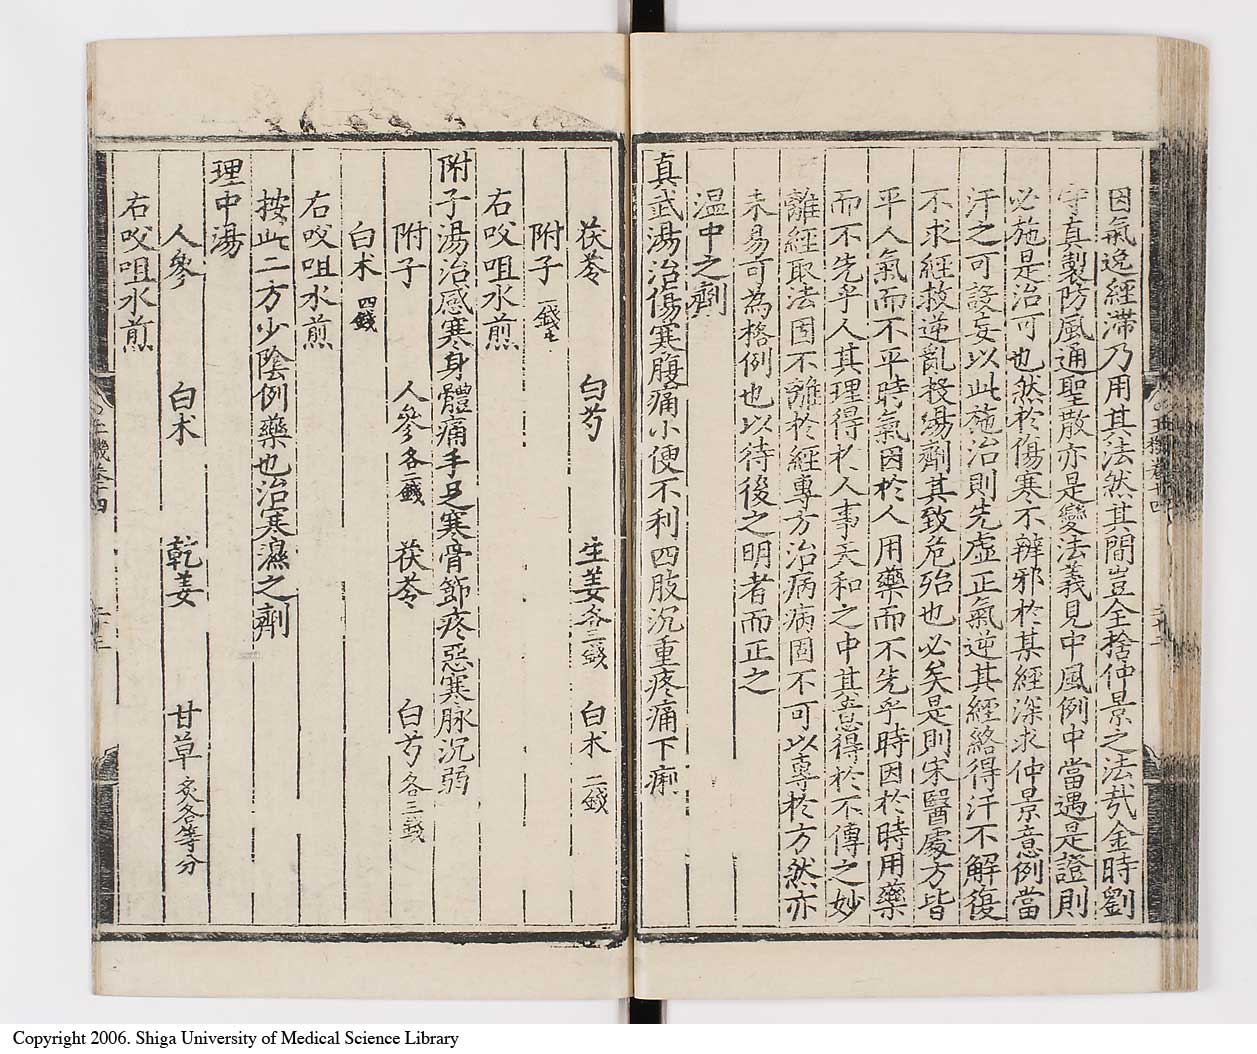 因氣逸經滯乃用其法然其間豈全捨仲景之法㢤金時劉
守真製防風通聖散亦是變法義見中風例中當遇是證則
必施是治可也然於傷寒不辨邪於某經深求仲景意例當
汗之可設妄以此施治則先虛正氣逆其經絡得汗不解復
不求經救逆亂投湯劑其致危殆也必矣是則宋醫處方皆
平人氣而不平時氣因於人用藥而不先乎時因於時用藥
而不先乎人其理得於人事天和之中其意得於不傳之妙
離經取法固不離於經專方治病病固不可以專於方然亦
未易可為格例也以待後之明者而正之
溫中之劑
真武湯治傷寒腹痛小便不利四肢沉重疼痛下痢
茯苓 白芍 生姜各三錢 白术二錢
附子一錢
右㕮咀水煎
附子湯治感寒身體痛手足寒骨節疼惡寒脉沉弱
附子 人參各二錢 茯苓 白芍各三錢
白术四錢
右㕮咀水煎
按此二方少陰例藥也治寒濕之劑
理中湯
人參 白术 乾姜 甘草炙各等分
右㕮咀水煎
Copyright 2006. Shiga University of Medical Science Library